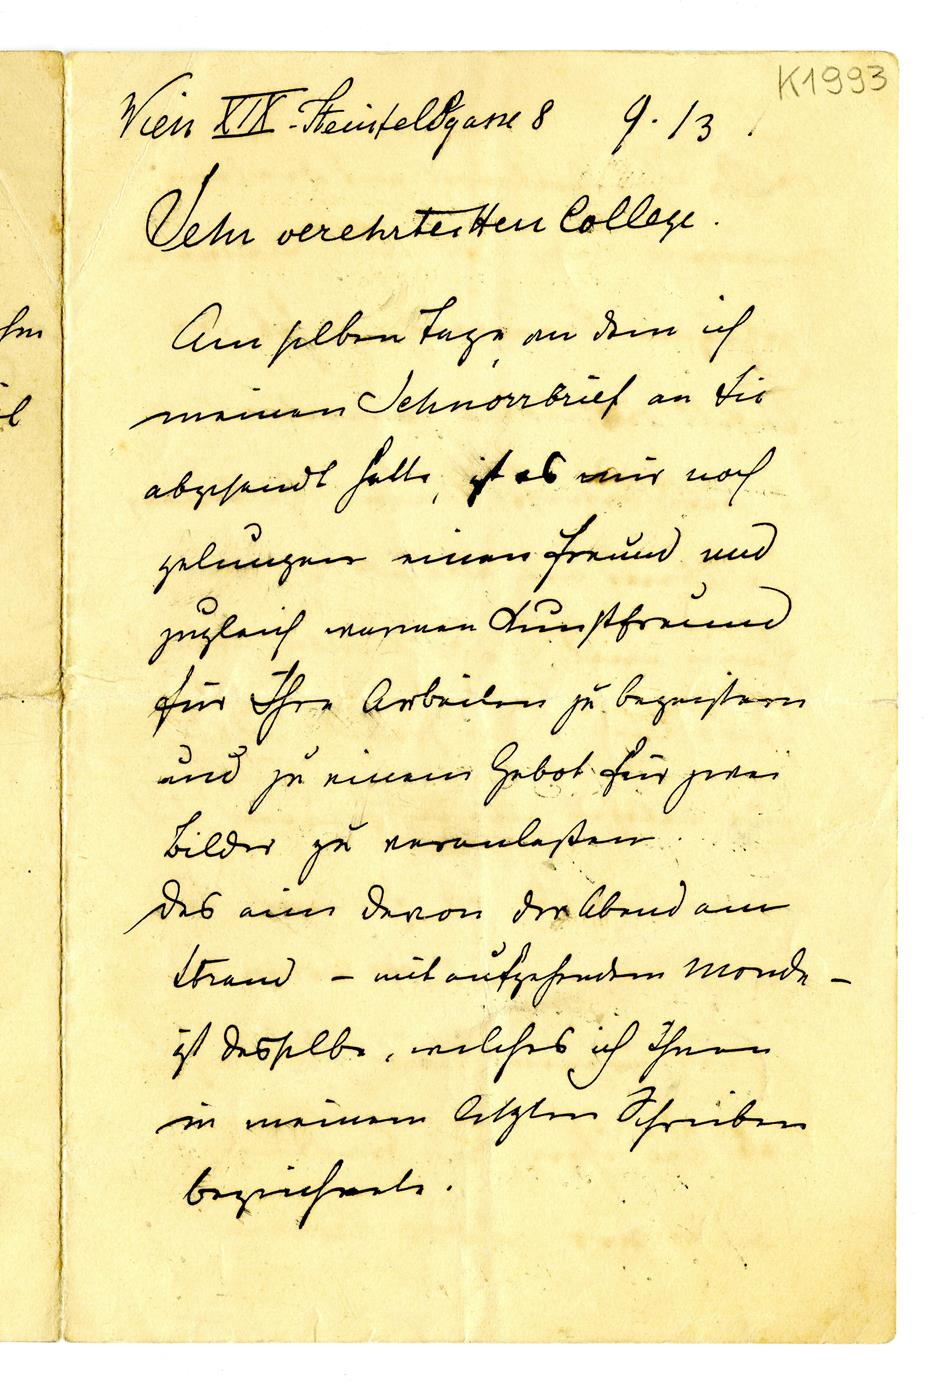 K1993
Wien XIX - Steinfeldgasse 8 9./3.
Sehr verehrter Herr College.
Am selben Tage, an dem ich
meinen Schnorrbrief an Sie
abgesandt hatte, ist es mir noch
gelungen einen Freund und
zugleich warmen Kunstfreund
für Ihre Arbeiten zu begeistern
und zu einem Gebot für zwei
Bilder zu veranlaßen.
Das eine davon der Abend am
Strand – mit aufgehendem Monde –
ist dasselbe, welches ich Ihnen
in meinem letzten Schreiben
bezeichnete.